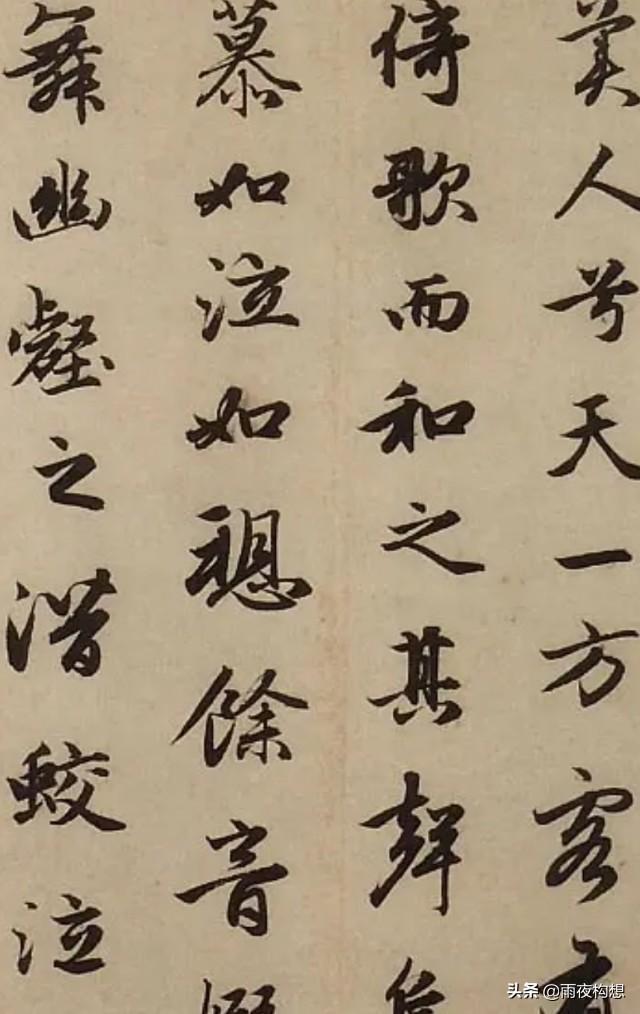 美人兮天一方客有
倚歌而和之其聲
慕如泣如愬餘音
舞幽壑之潛蛟泣
头条 @雨夜构想